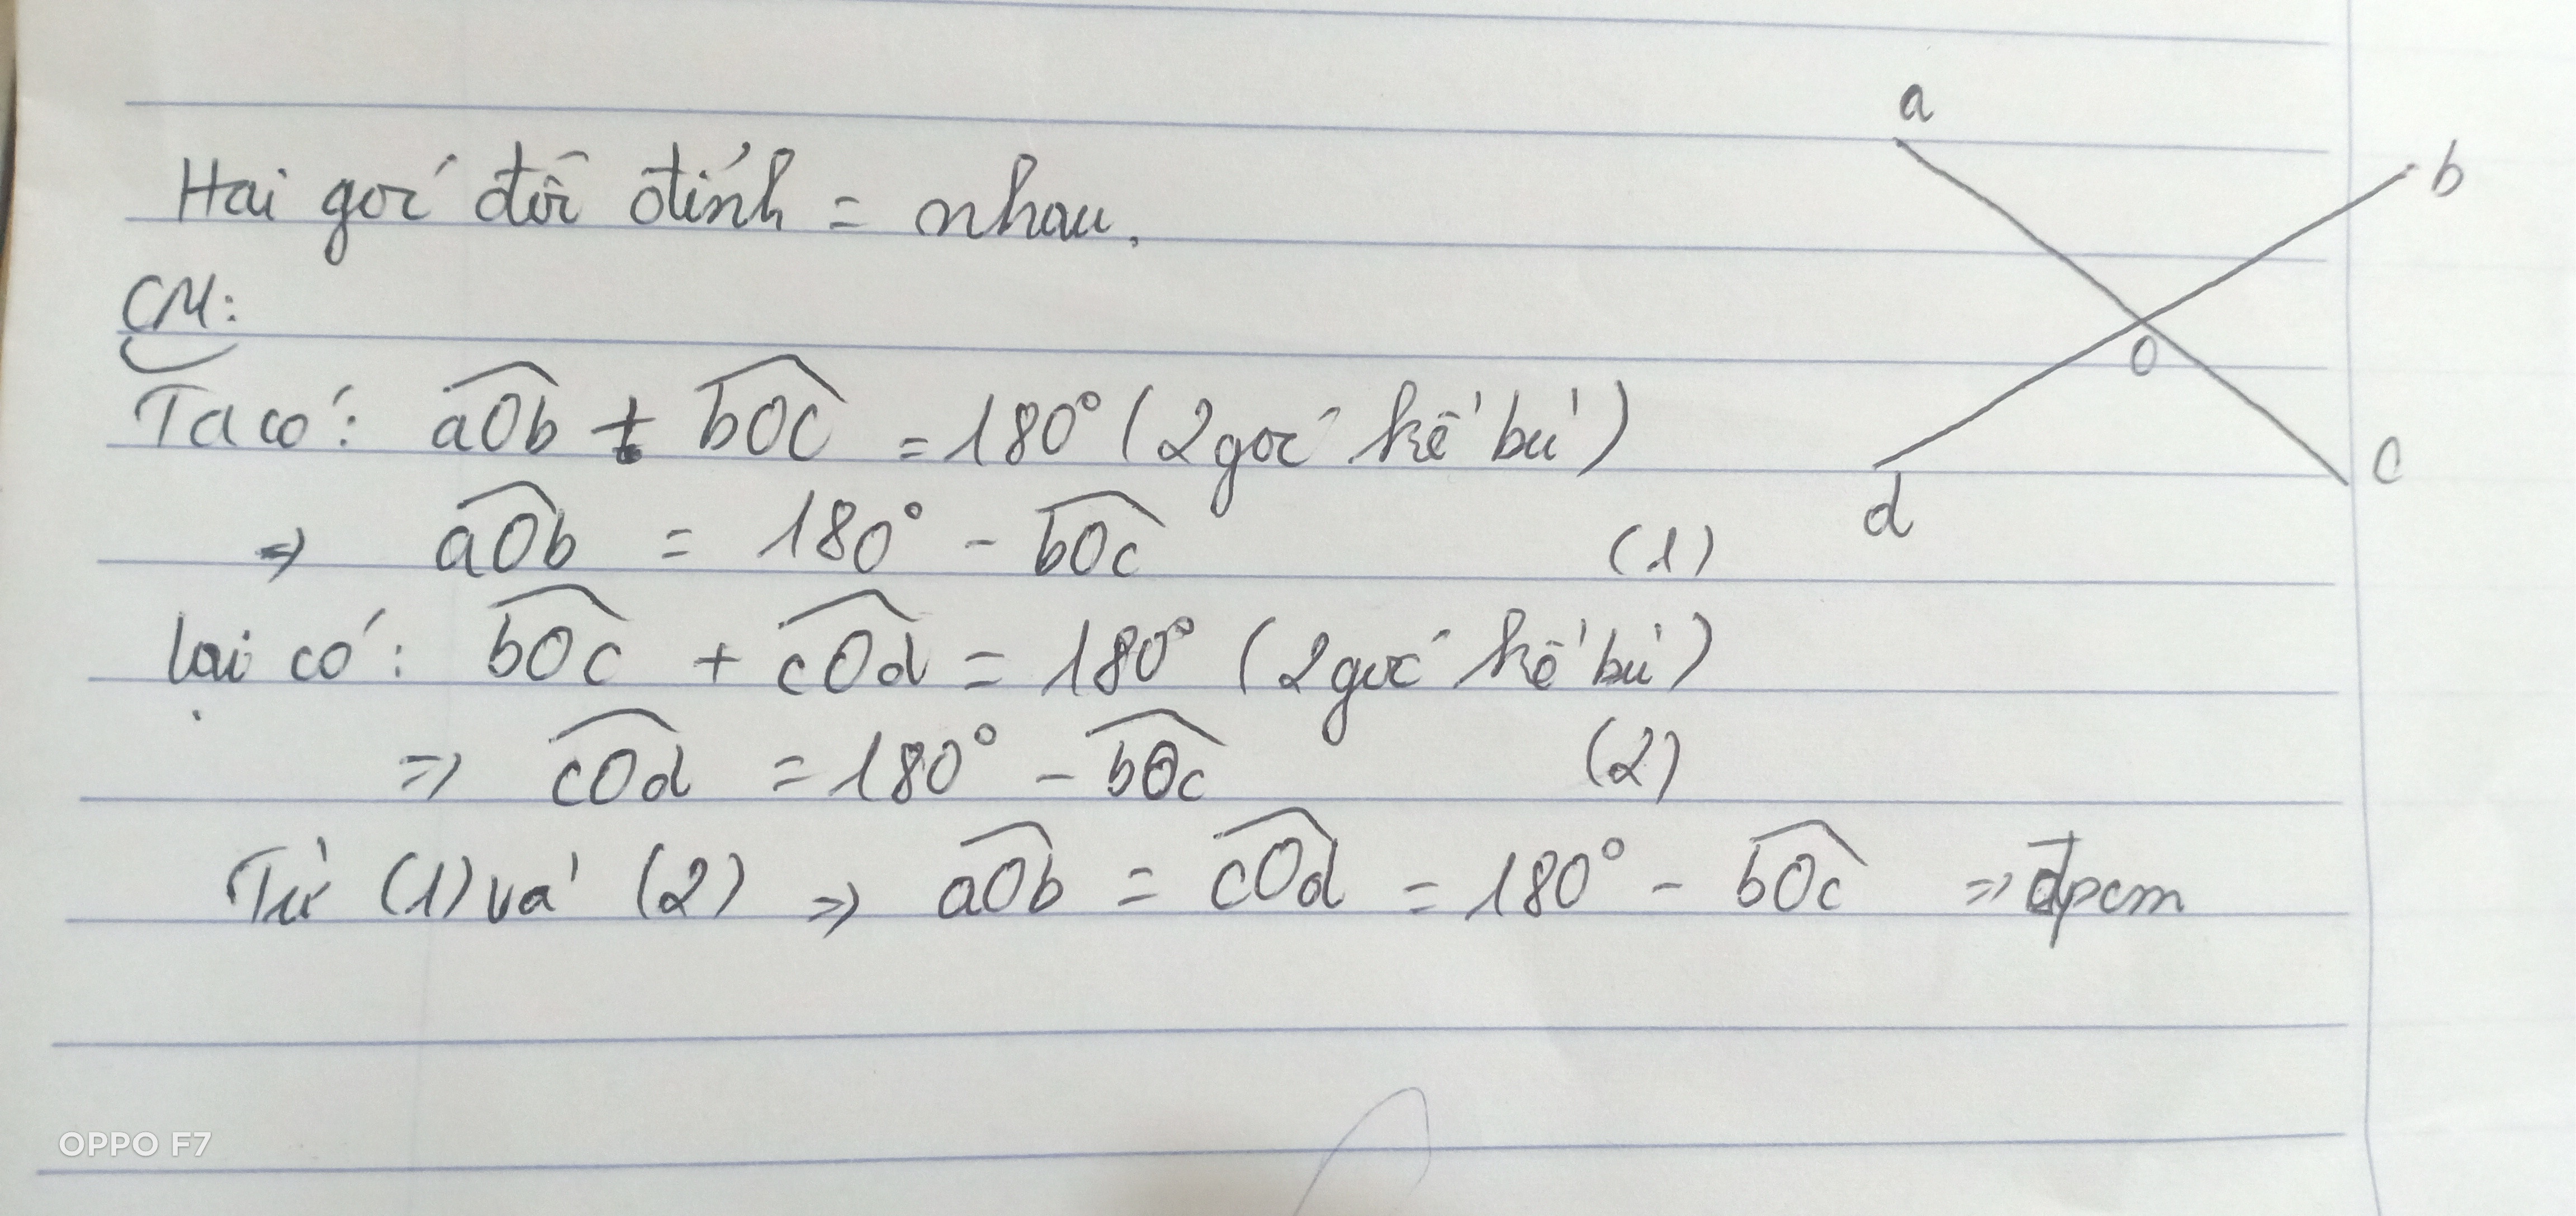 Hai góc đối đỉnh = nhau.
CM:
Ta có: aOb + bOc = 180° (2 góc kề bù)
=> aOb = 180° - bOc (1)
lại có: bOc + cOd = 180° (2 góc kề bù)
=> cOd = 180° - bOc (2)
Từ (1) và (2) => aOb = cOd = 180° - bOc => đpcm
a
b
O
c
d
OPPO F7